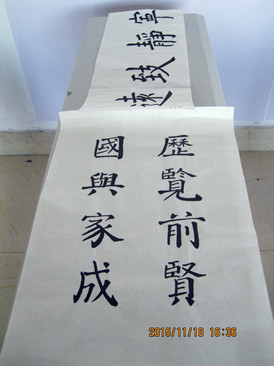 寧靜致遠
歷覽前賢
國與家成
2015/11/18 16:36